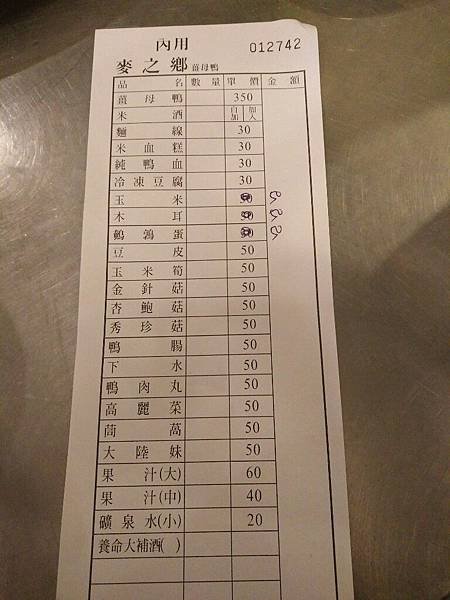 內用 012742
麥之鄉 薑母鴨
品名 數量 單價 金額
薑母鴨 350
米酒 自加 加入
麵線 30
米血糕 30
純鴨血 30
冷凍豆腐 30
玉米
木耳
鵪鶉蛋
豆皮 50
玉米筍 50
金針菇 50
杏鮑菇 50
秀珍菇 50
鴨腸 50
下水 50
鴨肉丸 50
高麗菜 50
茼萵 50
大陸妹 50
果汁(大) 60
果汁(中) 40
礦泉水(小) 20
養命大補酒( )